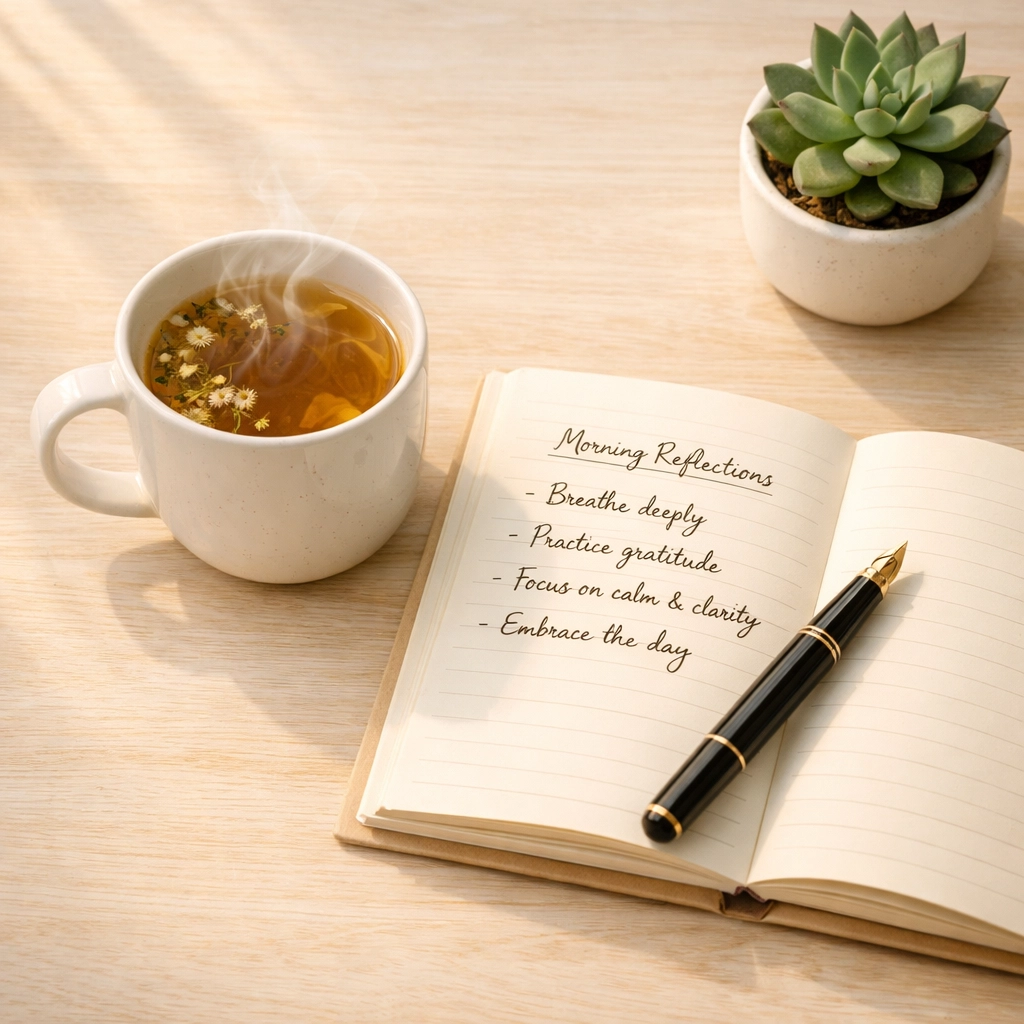 Morning Reflections
- Breathe deeply
- Practice gratitude
- Focus on calm & clarity
- Embrace the day